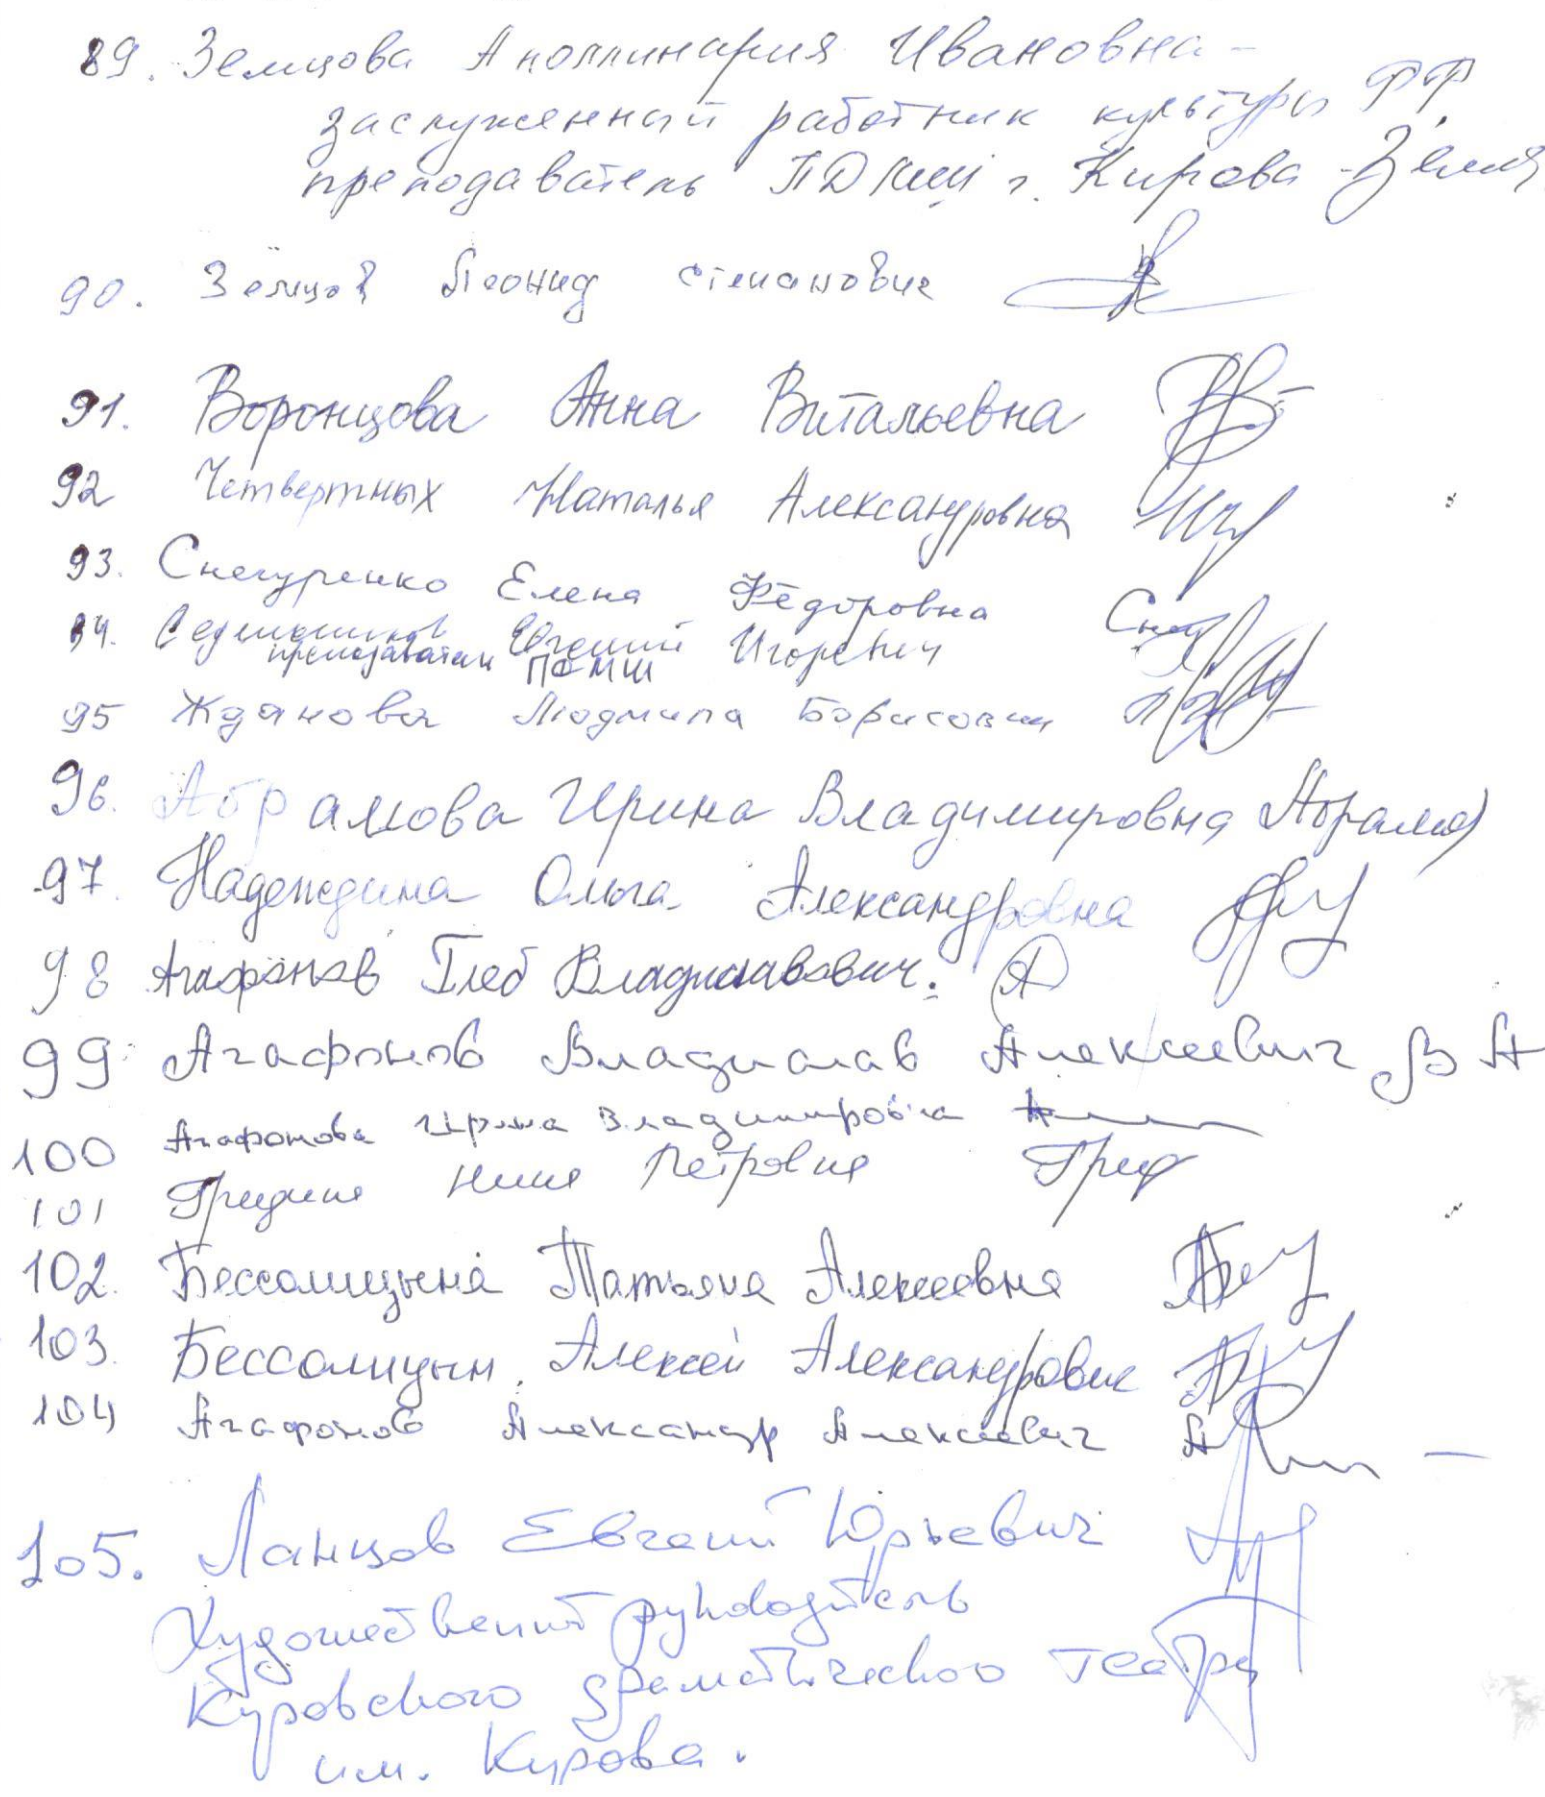 89. Земцова Аполлинария Ивановна -
заслуженный работник культуры РФ,
преподаватель ПДМШ г. Кирова - Земц
90. Земцов Леонид Степанович
91. Воронцова Анна Витальевна
92 Четвертных Наталья Александровна
93. Снегуренко Елена Фёдоровна Снег
94. Евгений Игоревич
преподаватель ПДМШ
95 Жданова Людмила Борисовна
96. Абрамова Ирина Владимировна Абрамов
97. Надеждина Ольга Александровна
98 Агафонов Глеб Владиславович. А
99 Агафонов Владислав Алексеевич В А
100 Агафонова Ирина Владимировна
101 Гридина Нина Петровна Грид
102. Бессолицына Татьяна Алексеевна
103. Бессолицын Алексей Александрович
104 Агафонов Александр Алексеевич
105. Ланцов Евгений Юрьевич
Художественный руководитель
Кировского драматического театра
им. Кирова.